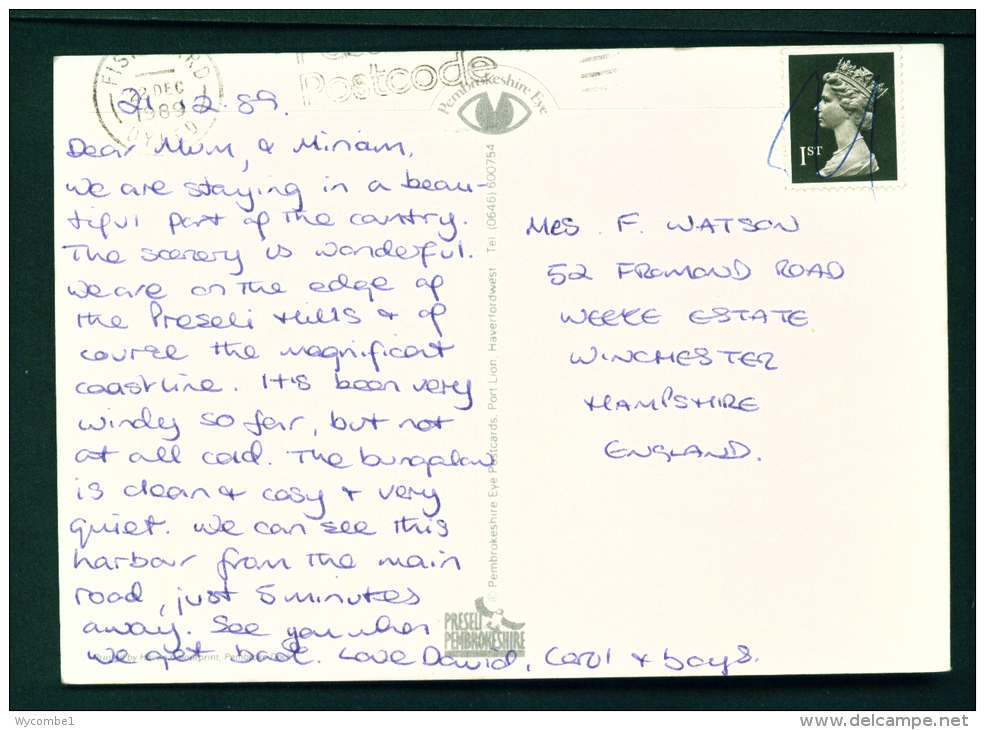 FISHGUARD
22 DEC
1989
DYFED
Postcode
Pembrokeshire Eye
1ST
21.12.89.
Dear Mum, & Miriam,
We are staying in a beau-
tiful part of the country.
The scenery is wonderful.
We are on the edge of
the Preseli Hills & of
course the magnificent
coastline. It's been very
windy so far, but not
at all cold. The bungalow
is clean & cosy & very
quiet. We can see this
harbour from the main
road, just 5 minutes
away. See you when
we get back. Love David, Carol & boys.
© Pembrokeshire Eye Postcards, Port Lion, Haverfordwest Tel (0646) 600754
PRESELI
PEMBROKESHIRE
MRS. F. WATSON
52 FROMOND ROAD
WEEKE ESTATE
WINCHESTER
HAMPSHIRE
ENGLAND.
Wycombe1
www.delcampe.net